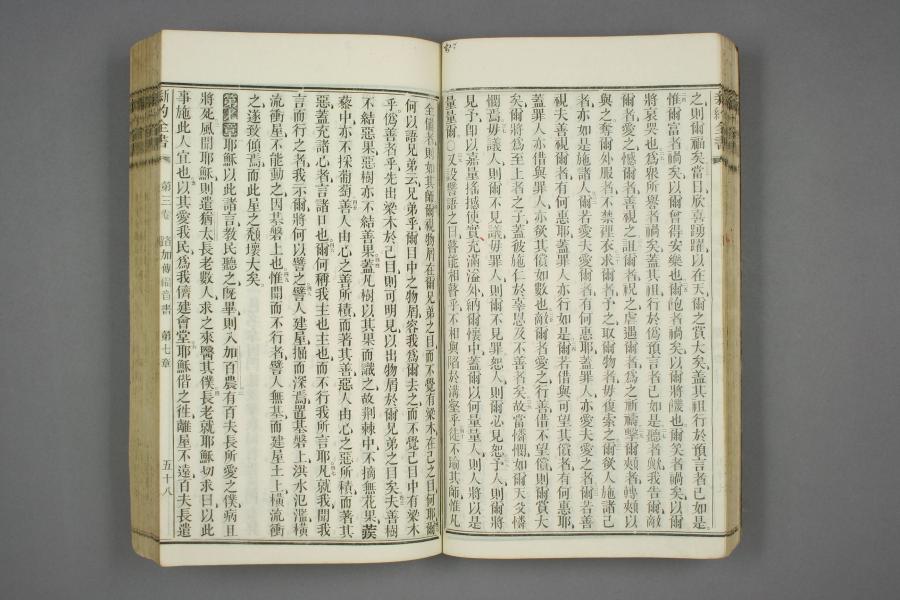 新約全書
之則爾福矣當日欣喜踴躍以在天爾之賞大矣蓋其祖行於預言者已如是
惟爾富者禍矣以爾曾得安樂也爾飽者禍矣以爾將饑也爾笑者禍矣以爾
將哀哭也爲衆所譽者禍矣蓋其祖行於僞預言者已如是聽者歟我告爾敵
爾者愛之憾爾者善視之詛爾者祝之虐遇爾者爲之祈禱擊爾頰者轉頰以
與之奪爾外服者不禁裡衣求爾者予之取爾物者毋復索之爾欲人施諸己
者亦如是施諸人爾若愛夫愛爾者有何惠耶蓋罪人亦愛夫愛之者爾若善
視夫善視爾者有何惠耶蓋罪人亦行如是爾若借與可望其償者有何惠耶
蓋罪人亦借與罪人欲其償如數也敵爾者愛之行善借不望償則爾賞大
矣爾將爲至上者之子蓋彼施仁於辜恩及不善者矣故當憐憫如爾天父憐
憫焉毋議人則爾不見議毋罪人則爾不見罪恕人則爾必見恕予人則爾將
見予卽以嘉量搖撼使實充滿溢外納爾懷中蓋爾以何量量人則人將以是
量量爾○又設譬語之曰瞽能相瞽乎不相與陷於溝壑乎徒不踰其師惟凡
全備者則如其師爾視物屑在爾兄弟之目而不覺有梁木在己之目何耶爾
何以語兄弟云兄弟乎爾目中之物屑容我爲爾去之而不覺己目中有梁木
乎僞善者乎先出梁木於己目則可明見以出物屑於爾兄弟之目矣夫善樹
不結惡果惡樹亦不結善果蓋凡樹以其果而識之故荆棘中不摘無花果蒺
藜中亦不採葡萄善人由心之善所積而著其善惡人由心之惡所積而著其
惡蓋充諸心者言諸口也爾何稱我主也主也而不行我所言耶凡就我聞我
言而行之者我示爾將何以譬之譬人建屋掘而深焉置基磐上洪水氾濫橫
流衝屋不能動之因基磐上也惟聞而不行者譬人無基而建屋土上橫流衝
之遂致傾焉而此屋之頹壞大矣
第七章耶穌以此諸言教民聽之旣畢則入加百農有百夫長所愛之僕病且
將死風聞耶穌則遣猶太長老數人求之來醫其僕長老就耶穌切求曰以此
事施此人宜也以其愛我民爲我儕建會堂耶穌偕之往離屋不遠百夫長遣
新約全書 第三卷 路加傳福音書 第七章 五十八